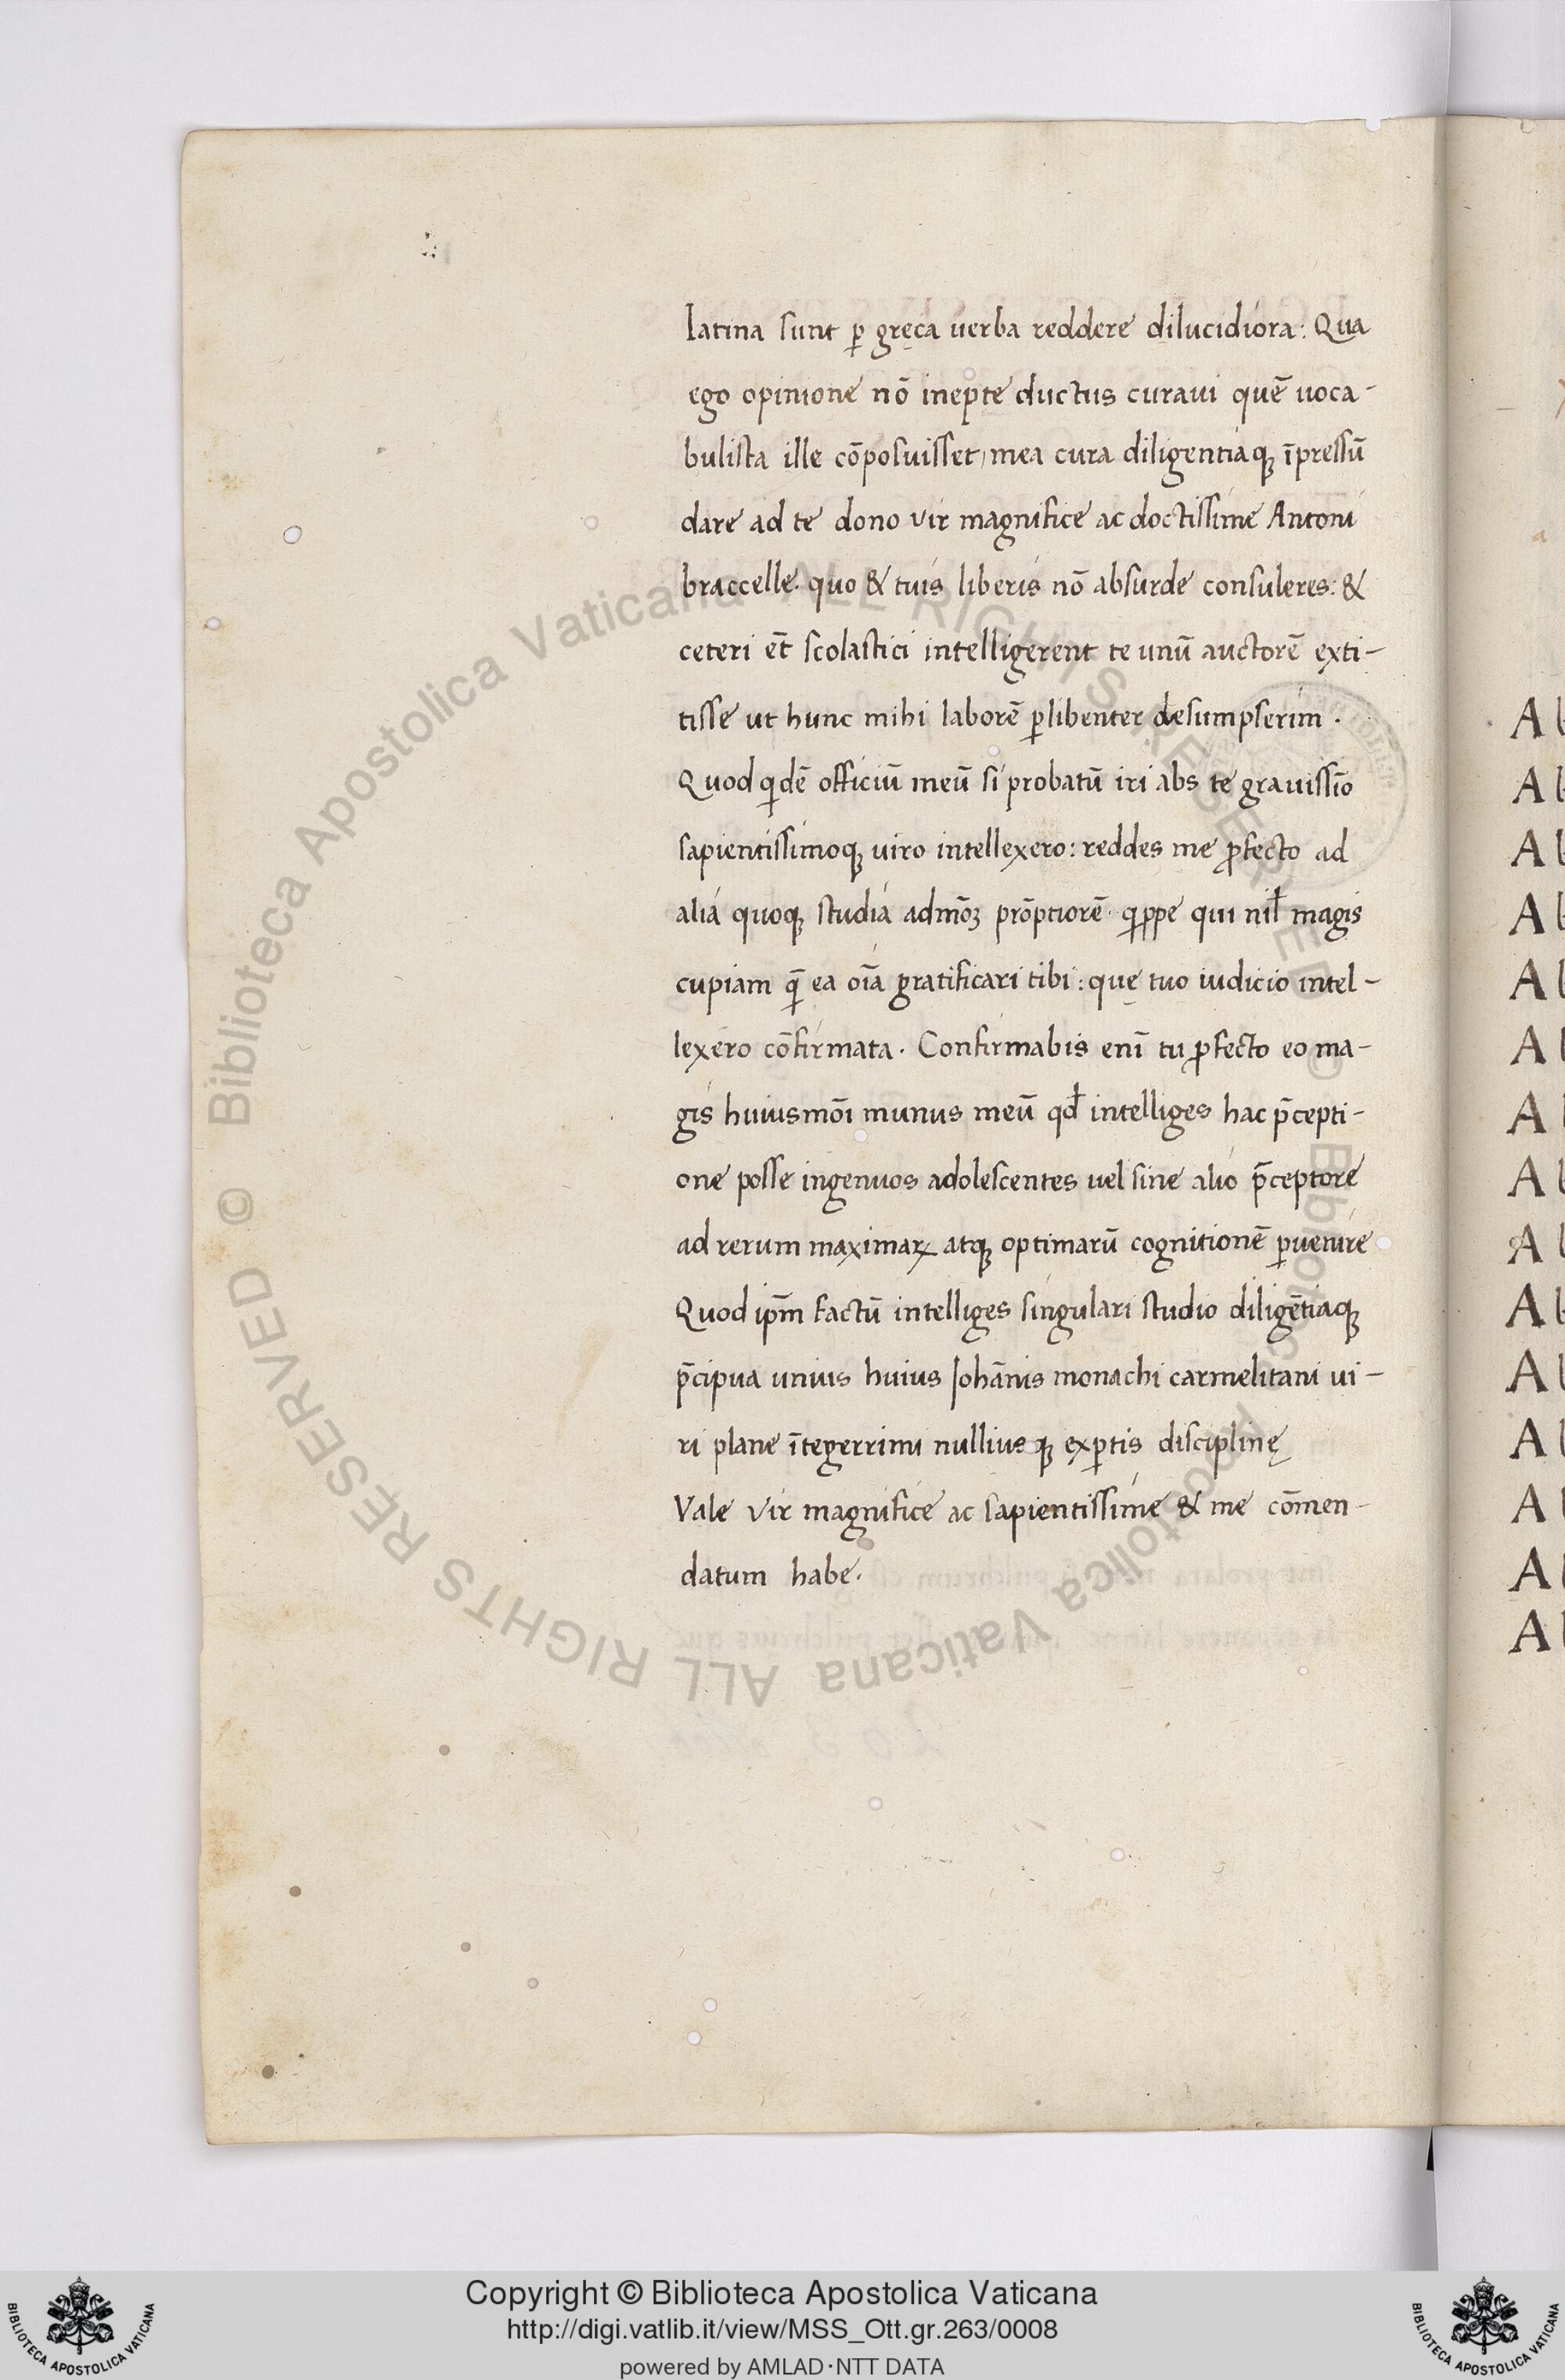 latina sunt ꝑ gręca uerba reddere dilucidiora: Qua
ego opinione nō inepte ductus curaui quē uoca-
bulista ille cōposuisset, mea cura diligentiaqꝫ īpressū
dare ad te dono vir magnifice ac doctissime Antoni
braccelle. quo & tuis liberis nō absurde consuleres: &
ceteri et̄ scolastici intelligerent te unū auctorē exti-
tisse ut hunc mihi laborē ꝑlibenter desumpserim.
Quod qͥdē officiū meū si probatū iri abs te grauissīo
sapientissimoqꝫ uiro intellexero: reddes me ꝓfecto ad
alia quoqꝫ studia admōꝫ prōptiorē. qͥppe qui nił magis
cupiam q̄ ea oīa gratificari tibi: quę tuo iudicio intel-
lexero cōfirmata. Confirmabis enī tu ꝓfecto eo ma-
gis huiusmōi munus meū qđ intelliges hac p̄cepti-
one posse ingenuos adolescentes uel sine alio p̄ceptore
ad rerum maximaꝝ atqꝫ optimarū cognitionē ꝑuenire
Quod ip̄m factū intelliges singulari studio diligētiaqꝫ
p̄cipua unius huius Johānis monachi carmelitani ui-
ri plane ītegerrimi nulliusqꝫ exꝑtis disciplinę
Vale vir magnifice ac sapientissime & me cōmen-
datum habe.
© Biblioteca Apostolica Vaticana ALL RIGHTS RESERVED
© Biblioteca Apostolica Vaticana ALL RIGHTS RESERVED
Copyright © Biblioteca Apostolica Vaticana
http://digi.vatlib.it/view/MSS_Ott.gr.263/0008
powered by AMLAD·NTT DATA
BIBLIOTECA APOSTOLICA VATICANA
BIBLIOTECA APOSTOLICA VATICANA